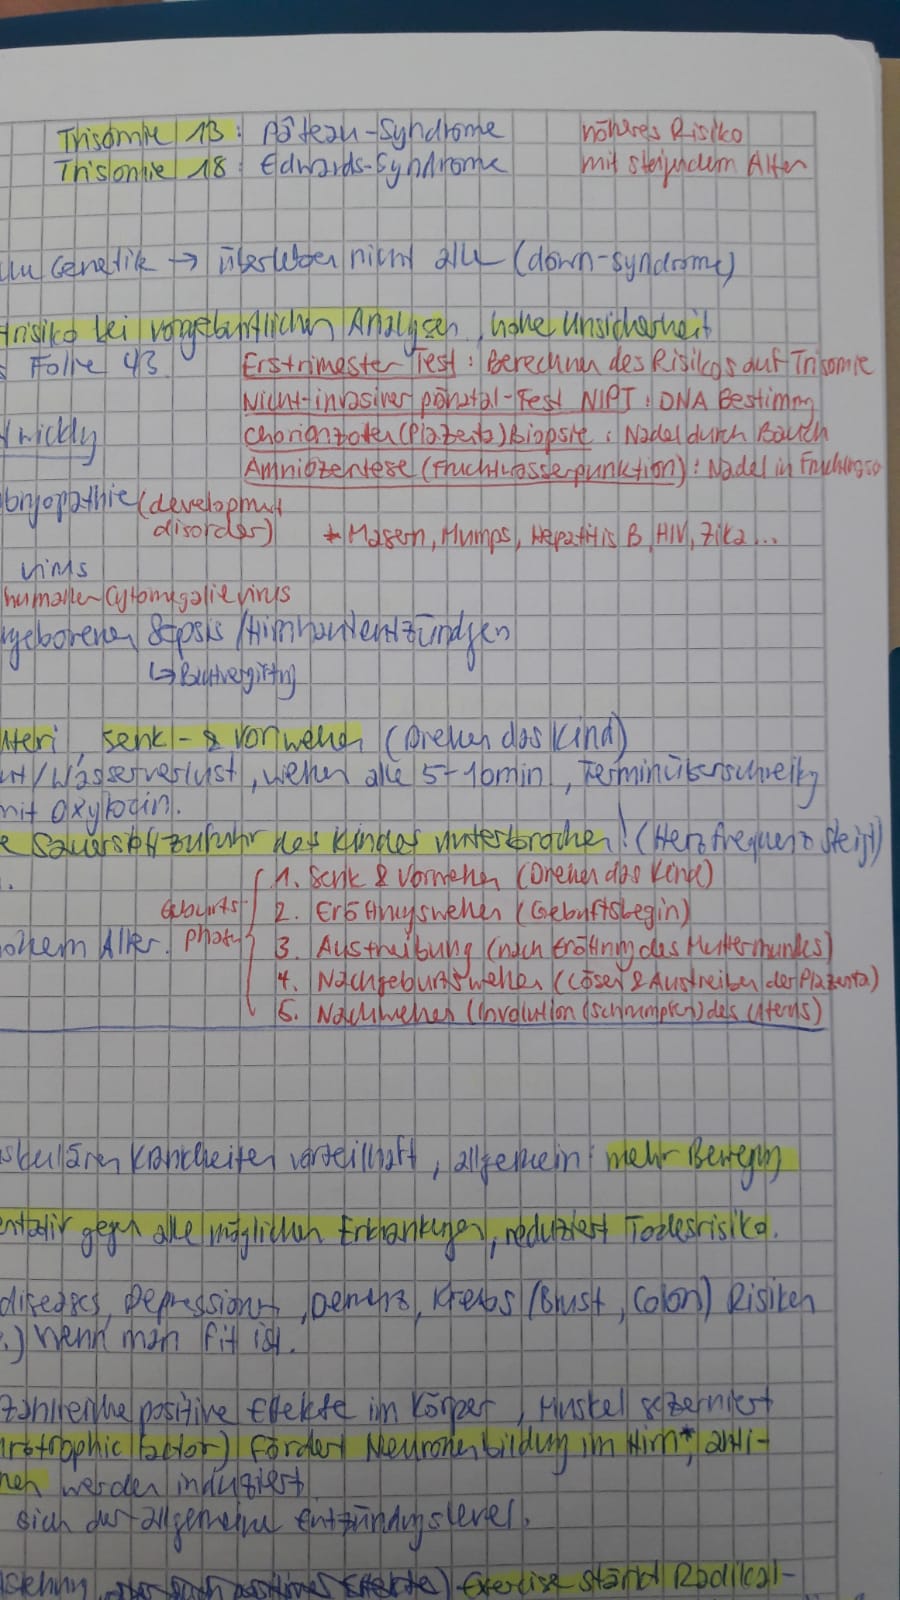 Trisomie 13: Pâteau-Syndrome höheres Risiko
Trisomie 18: Edwards-Syndrome mit steigendem Alter
Genetik → überleben nicht alle (down-syndrome)
risiko bei vorgeburtlichen Analysen, hohe Unsicherheit
Folie 43 Ersttrimester Test: Berechnen des Risikos auf Trisomie
Nicht-invasiver pänatal-Test NIPT: DNA Bestimmng
wickly Chorionzoten (Plazenta) Biopsie: Nadel durch Bauch
Amniozentese (Fruchtwasserpunktion): Nadel in Fruchtwss
bryopathie (development
disorder) * Masern, Mumps, Hepatitis B, HIV, Zika...
virus
humanen Cytomegalievirus
geborenen Sepsis / Hirnhautentzündgen
↳ Blutvergiftng
teri, Senk- & Vorwehen (Drehen das Kind)
/Wasserverlust, wehen alle 5-10min, Terminüberschreitg
mit Oxytocin.
e Sauerstoffzufuhr des Kindes unterbrochen! (Herzfrequenz steigt)
1. Senk & Vorwehen (Drehen das Kind)
Geburts- 2. Eröffnungswehen (Geburtsbegin)
ohem Alter. phasen 3. Austreibung (nach Eröffnung des Muttermundes)
4. Nachgeburtswehen (Lösen & Austreiben der Plazenta)
5. Nachwehen (Involution (schrumpfen) des Uterus)
skulären Krankheiten vorteilhaft, allgemein: mehr Bewegung
entativ gegen alle möglichen Erkrankungen, reduziert Todesrisiko.
diseases, Depressionen, Demenz, Krebs (Brust, Colon) Risiken
.) wenn man fit ist.
zahlreiche positive Effekte im Körper, Muskel sezerniert
rotrophic factor) fördert Neuronenbildung im Hirn*, anti-
nen werden induziert
sich der allgemeine Entzündungslevel.
Exercise stärkt Radikal-